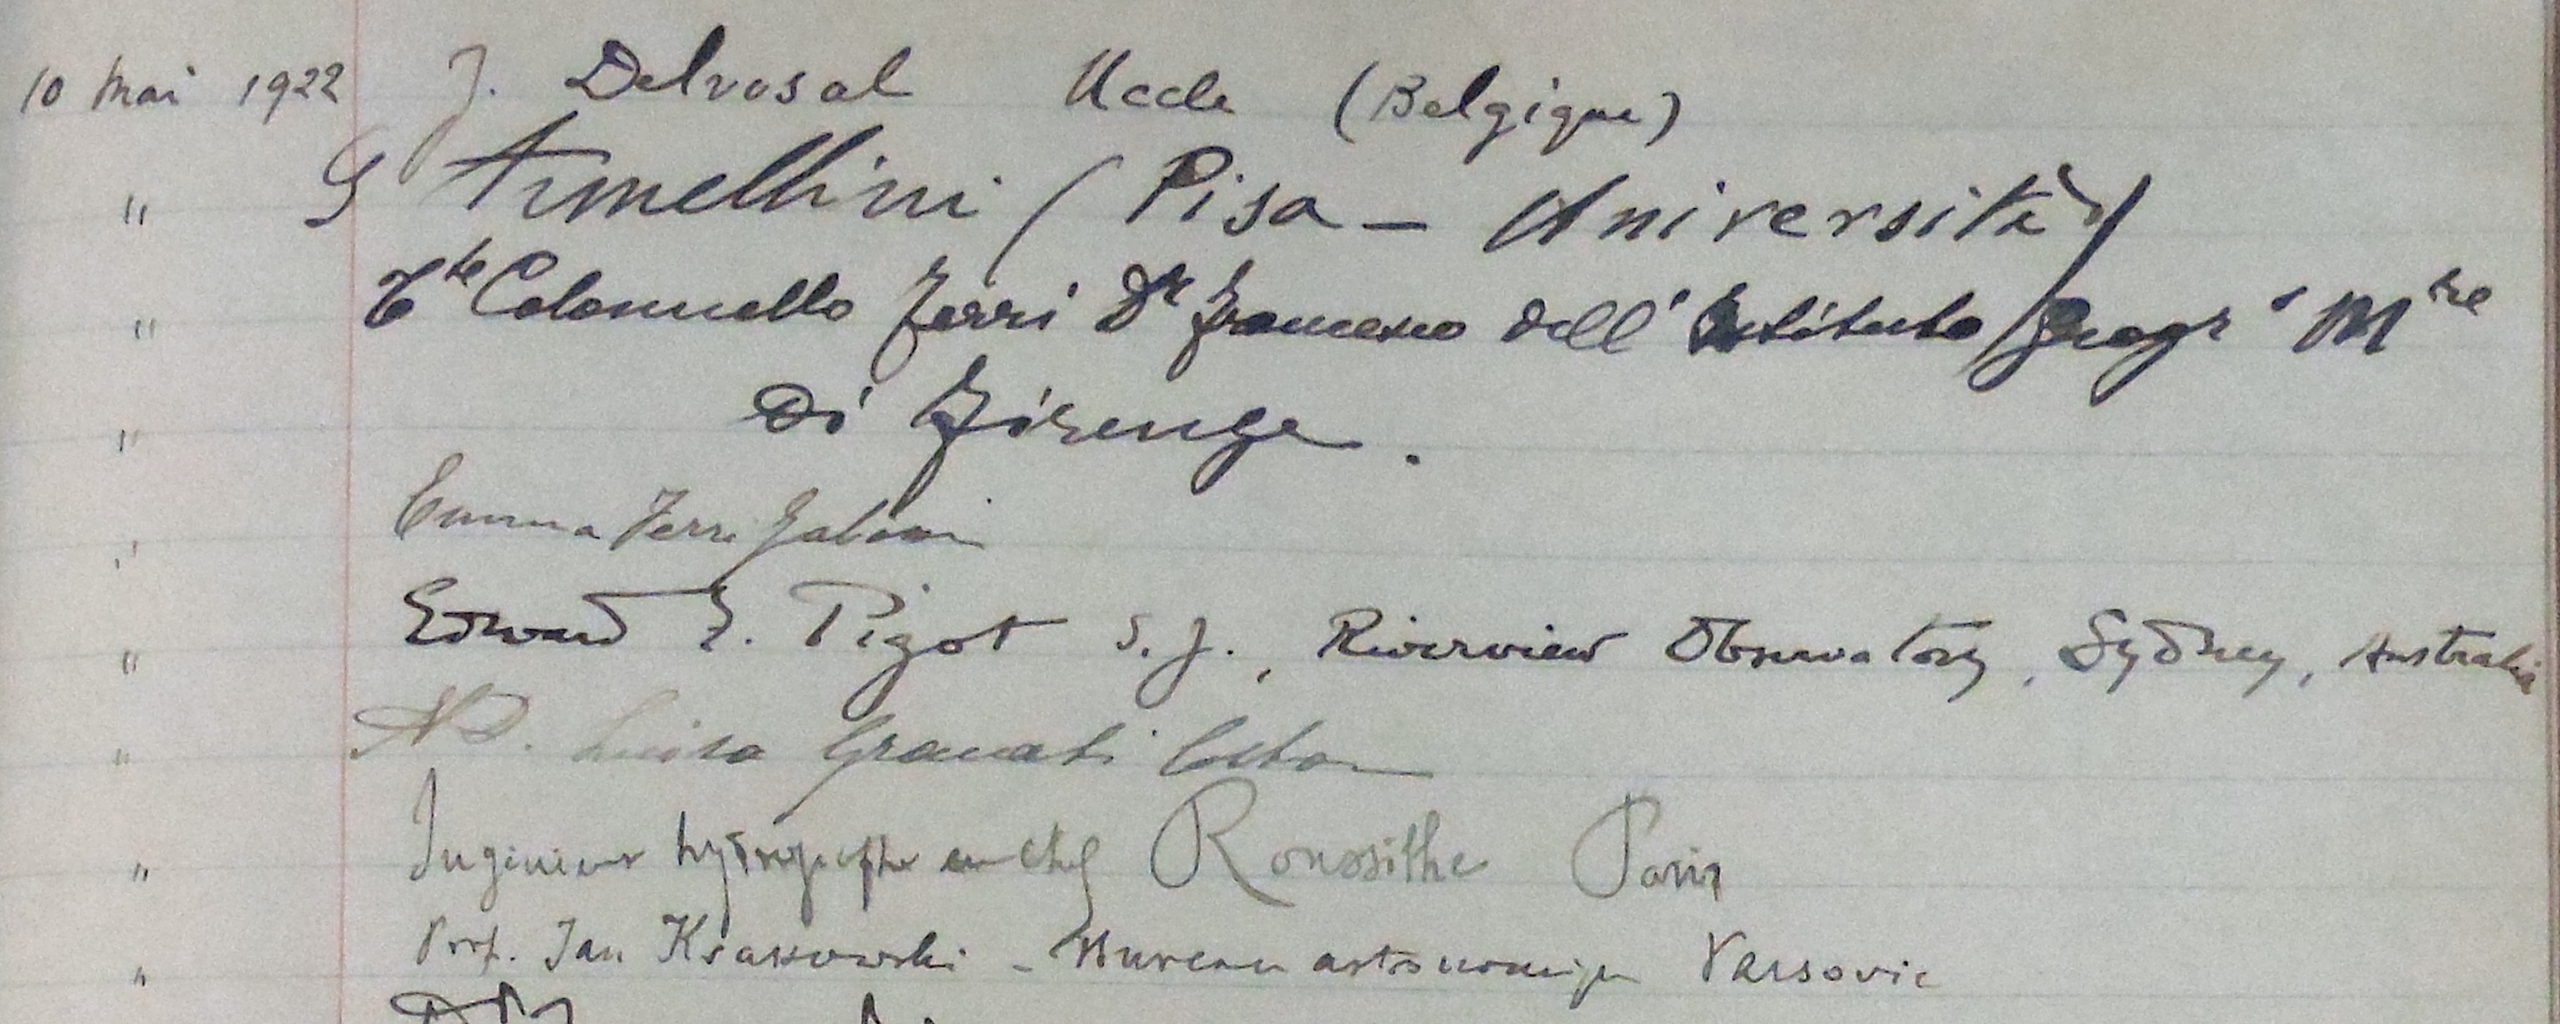 10 Mai 1922 J. Delvosal Uccle (Belgique)
" G Armellini (Pisa - Università)
" Tte Colonnello Ferri Dr Francesco dell' Istituto Geogr° Mre
" Di Firenze.
" Emma Ferri
" Edward F. Pigot S.J., Riverview Observatory, Sydney, Australia
" N.D. Luisa Granati
" Ingénieur hydrographe en chef Paris
" Prof. Jan Krassowski - Bureau astronomique Varsovie